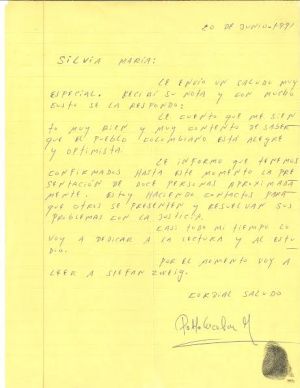 20 DE JUNIO-1991
SILVIA MARIA:
LE ENVIO UN SALUDO MUY
ESPECIAL. RECIBI SU NOTA Y CON MUCHO
GUSTO SE LA RESPONDO:
LE CUENTO QUE ME SIEN
TO MUY BIEN Y MUY CONTENTO DE SABER
QUE EL PUEBLO COLOMBIANO ESTÁ ALEGRE
Y OPTIMISTA.
LE INFORMO QUE TENEMOS
CONFIRMADOS HASTA ESTE MOMENTO LA PRE
SENTACIÓN DE DOCE PERSONAS APROXIMADA
MENTE. ESTOY HACIENDO CONTACTOS PARA
QUE OTROS SE PRESENTEN Y RESUELVAN SUS
PROBLEMAS CON LA JUSTICIA.
CASI TODO MI TIEMPO LO
VOY A DEDICAR A LA LECTURA Y AL ESTU
DIO.
POR EL MOMENTO VOY A
LEER A STEFAN ZWEIG.
CORDIAL SALUDO
Pablo Escobar G